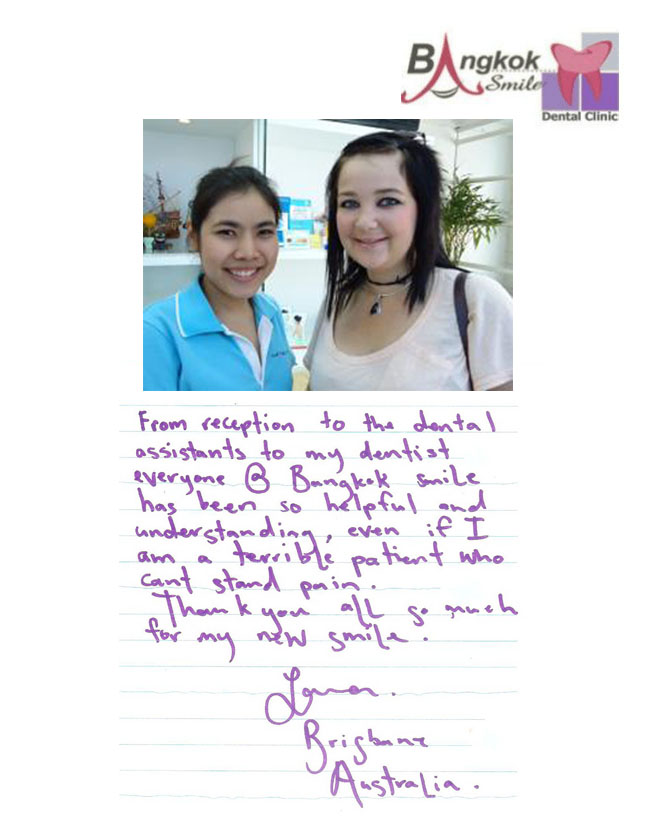 BAngkok
Smile
Dental Clinic
From reception to the dental
assistants to my dentist
everyone @ Bangkok smile
has been so helpful and
understanding, even if I
am a terrible patient who
cant stand pain.
Thank you all so much
for my new smile.
Brisbane
Australia.